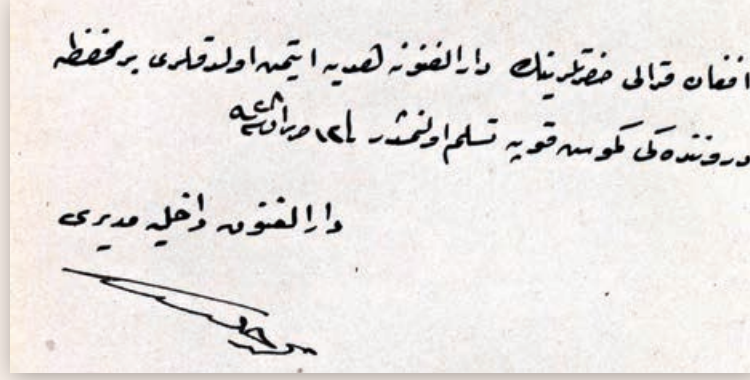 افغان قرالی حضرتلرینك دارالفنونه هدیه ایتمش اولدقلری بر محفظه
درونندەکی کموش قوبه تسلم اولنمشدر
دارالفنون داخلیه مدیری